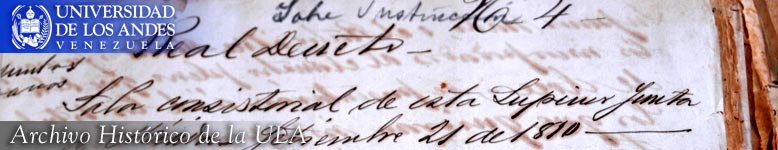 UNIVERSIDAD
DE LOS ANDES
VENEZUELA
Sobre Instrucción
4
Real Decreto
Sala consistorial de esta Superior Junta
21 de 1810
Archivo Histórico de la ULA